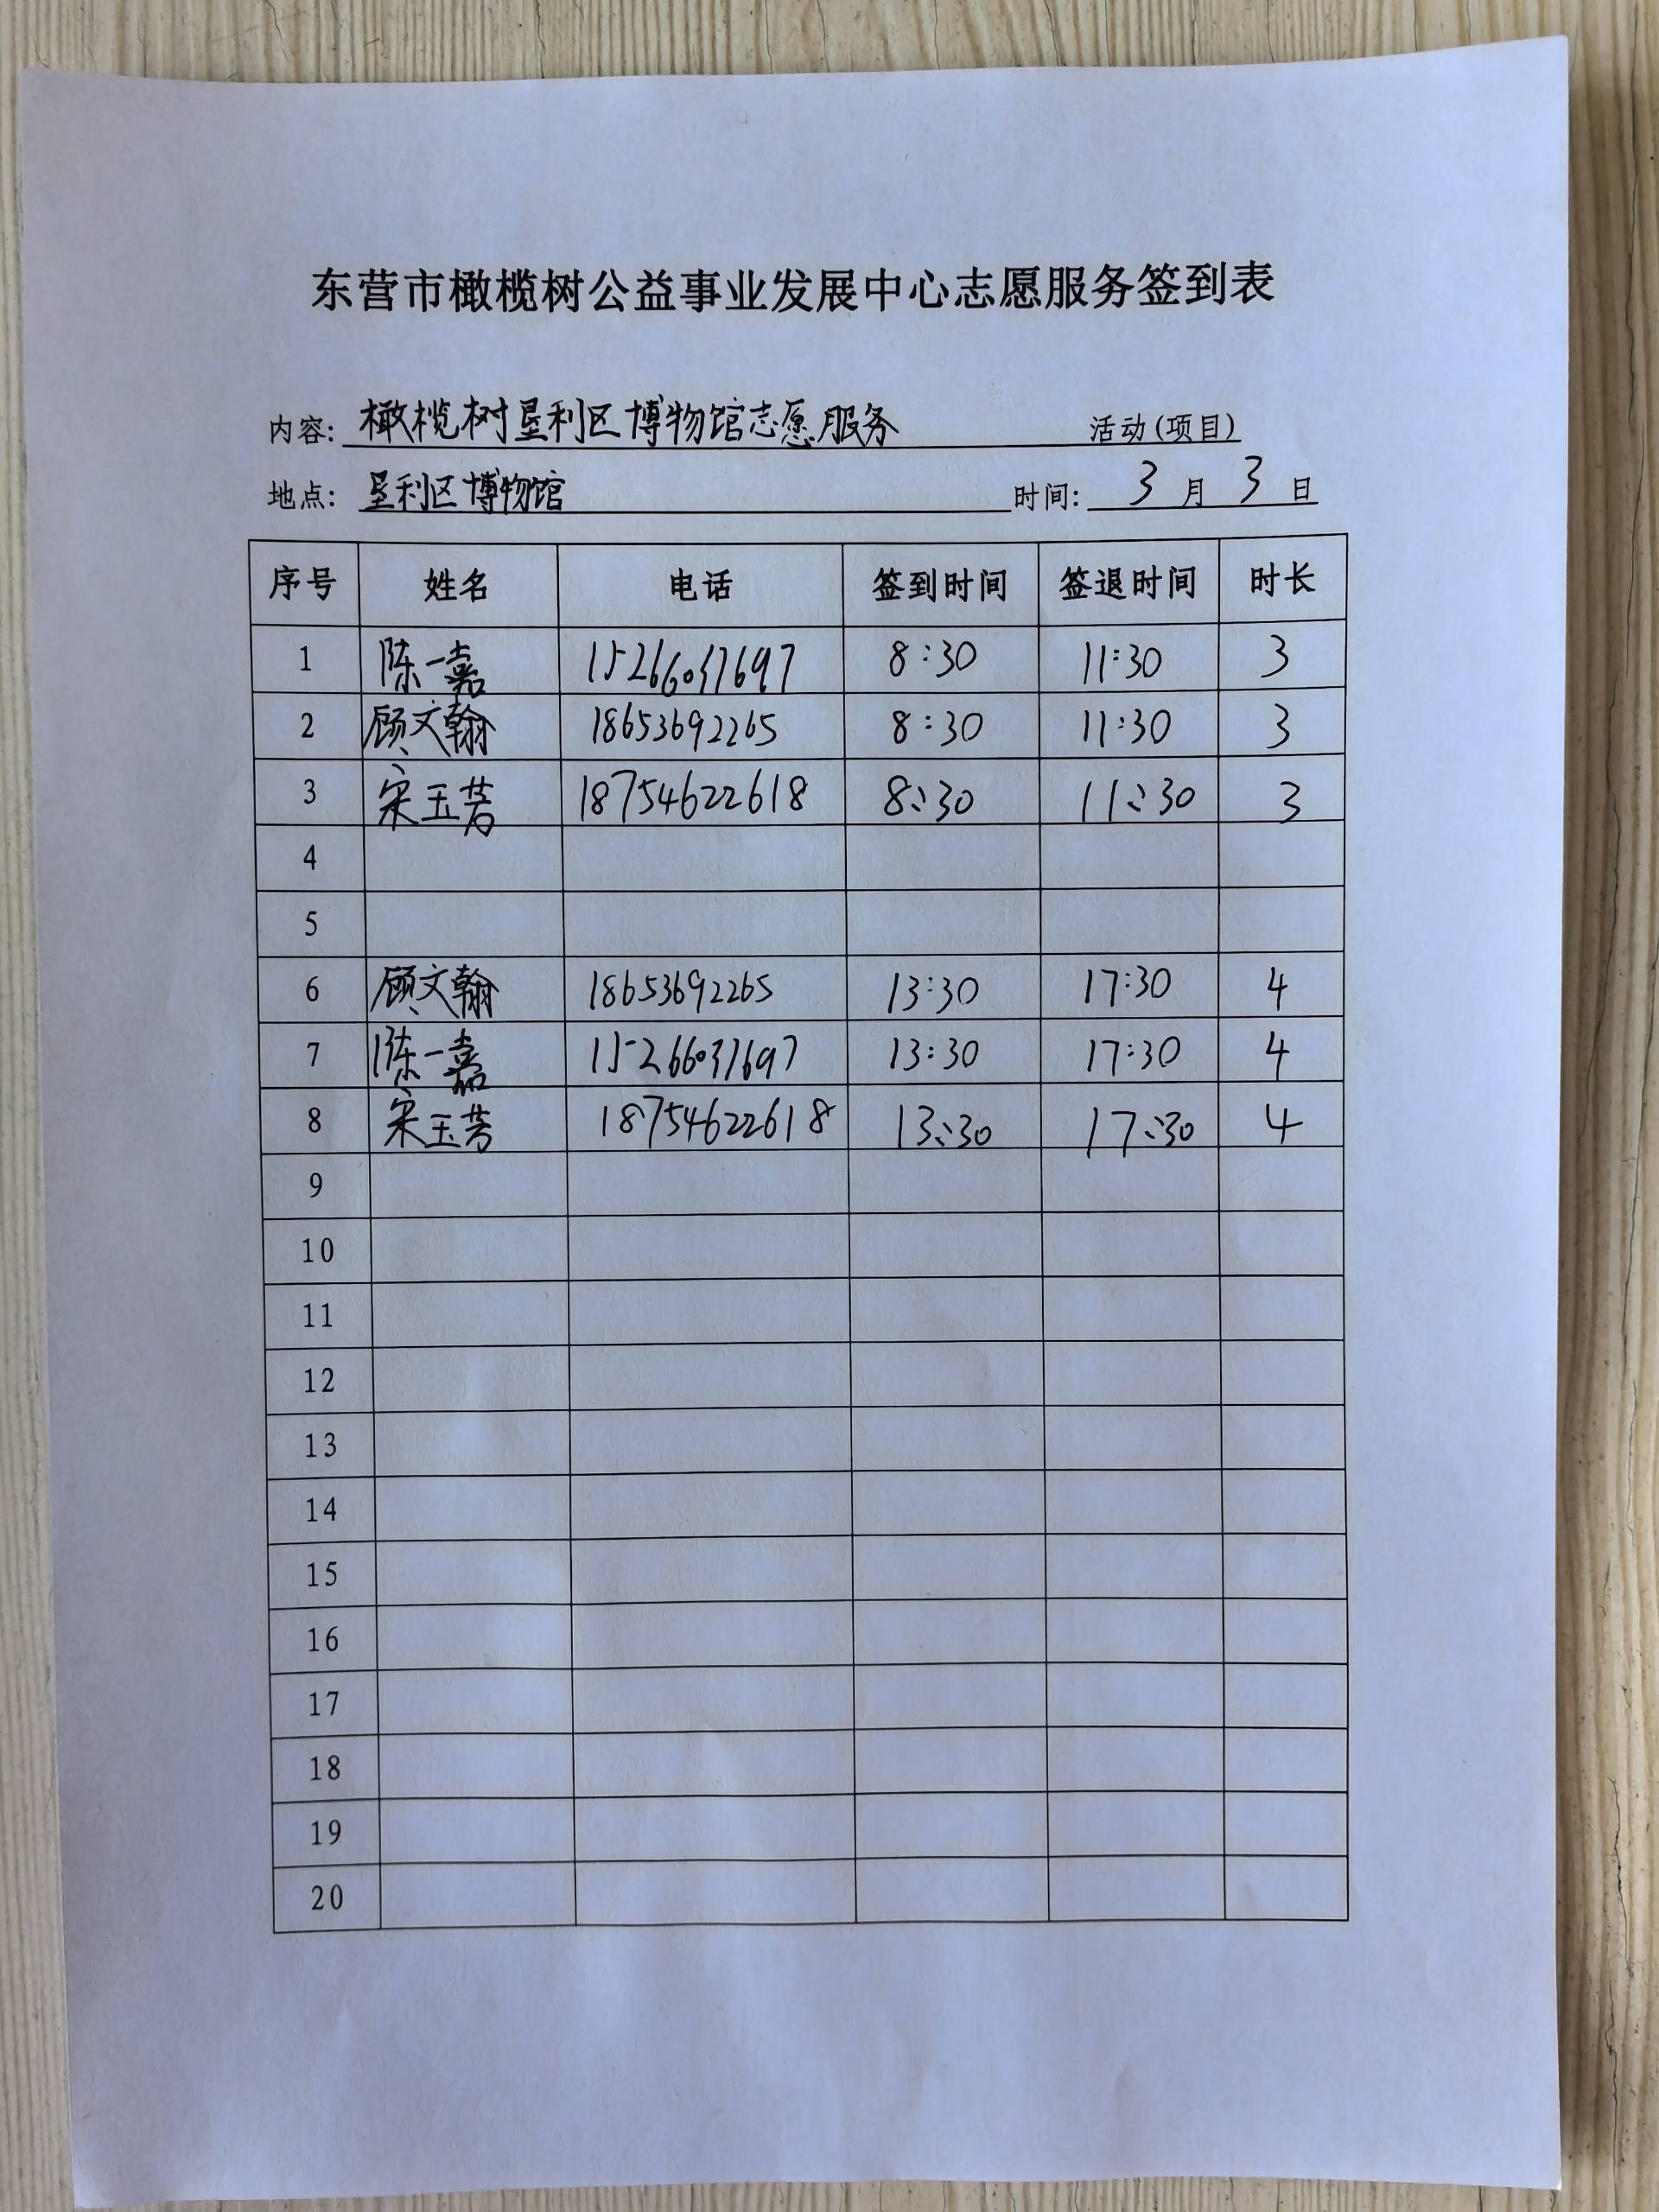 东营市橄榄树公益事业发展中心志愿服务签到表
内容: 橄榄树垦利区博物馆志愿服务 活动(项目)
地点: 垦利区博物馆 时间: 3 月 3 日
序号 姓名 电话 签到时间 签退时间 时长
1 陈一嘉 15266037697 8:30 11:30 3
2 顾文翰 18653692265 8:30 11:30 3
3 宋玉芳 18754622618 8:30 11:30 3
4
5
6 顾文翰 18653692265 13:30 17:30 4
7 陈一嘉 15266037697 13:30 17:30 4
8 宋玉芳 18754622618 13:30 17:30 4
9
10
11
12
13
14
15
16
17
18
19
20